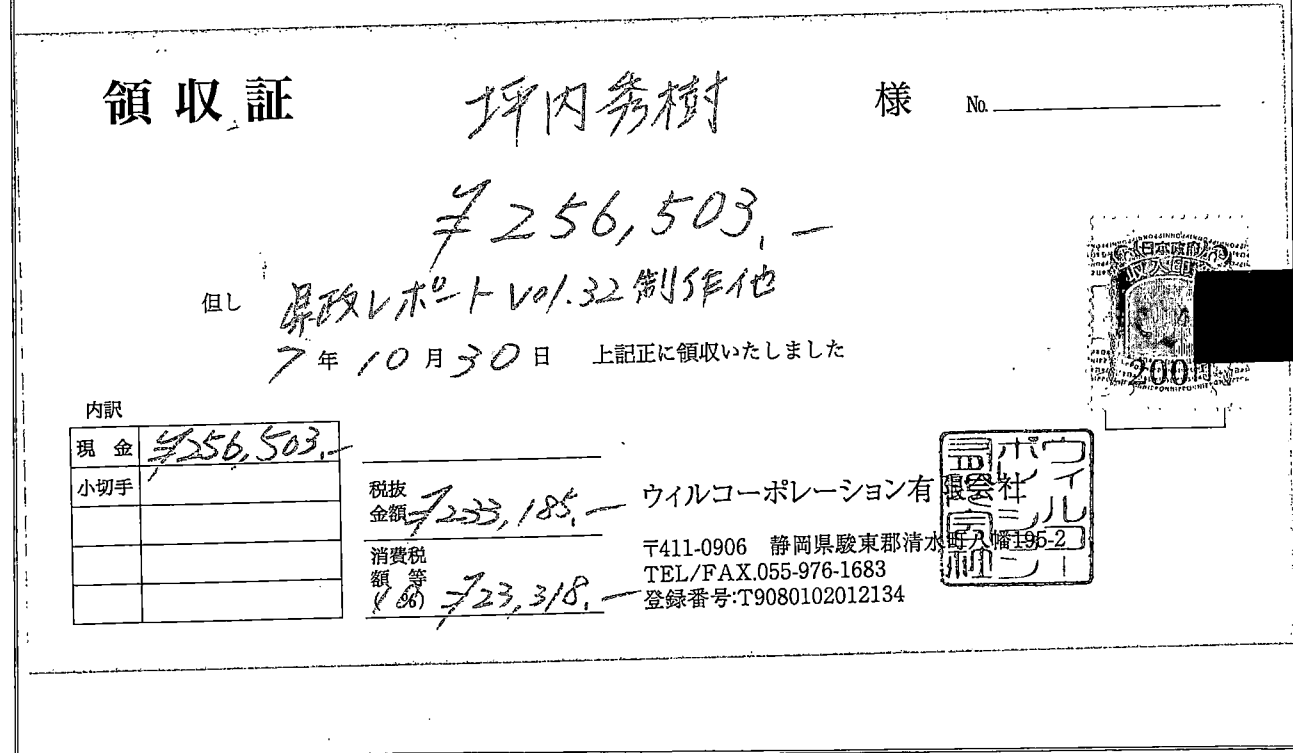 領収証 坪内秀樹 様 No.
¥256,503.-
但し 県政レポートVol.32制作他
7年10月30日 上記正に領収いたしました
日本政府
200円
内訳
現金 ¥256,503.-
小切手
税抜金額 ¥233,185.-
消費税額等( %) ¥23,318.-
ウィルコーポレーション有限会社
〒411-0906 静岡県駿東郡清水町八幡195-2
TEL/FAX.055-976-1683
登録番号:T9080102012134